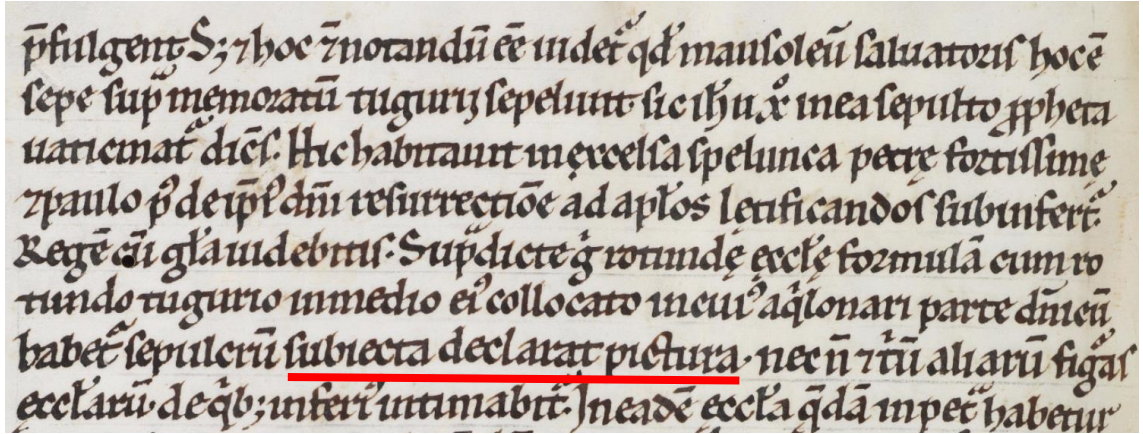 p̄fulgent. S; ⁊ hoc ⁊ notandū ēē uidet᷑ qd̕ mausoleū saluatoris hoc ē
sepe supᷓ memoratū tugurıȷ sepelunt. sic ih̄u xͦ in ea sepulto ꝓpheta
uaticinat᷑ dicēs. Hic habitauit in excelsa spelunca petrę fortissimę
⁊ paulo pꝰ de ip̄iꝰ dn̄i resurrectiōe ad apl̄os lętificandos subinfert᷑.
Regē cū gl̄a uidebitis. Supᷓdicte g̊ rotundę ęccl̄ę formulā cum ro
tundo tugurio in medio eiꝰ collocato in cuiꝰ aq̇lonari parte dn̄icū
habet᷑ sepulcrū subiecta declarat pictura. nec n̄ ⁊ t̄ū aliarū figᷓas
ęccl̄arū. de qͥb; inferiꝰ intimabit᷑. In eadē ęccl̄a q̄dā in petᷓ habetur